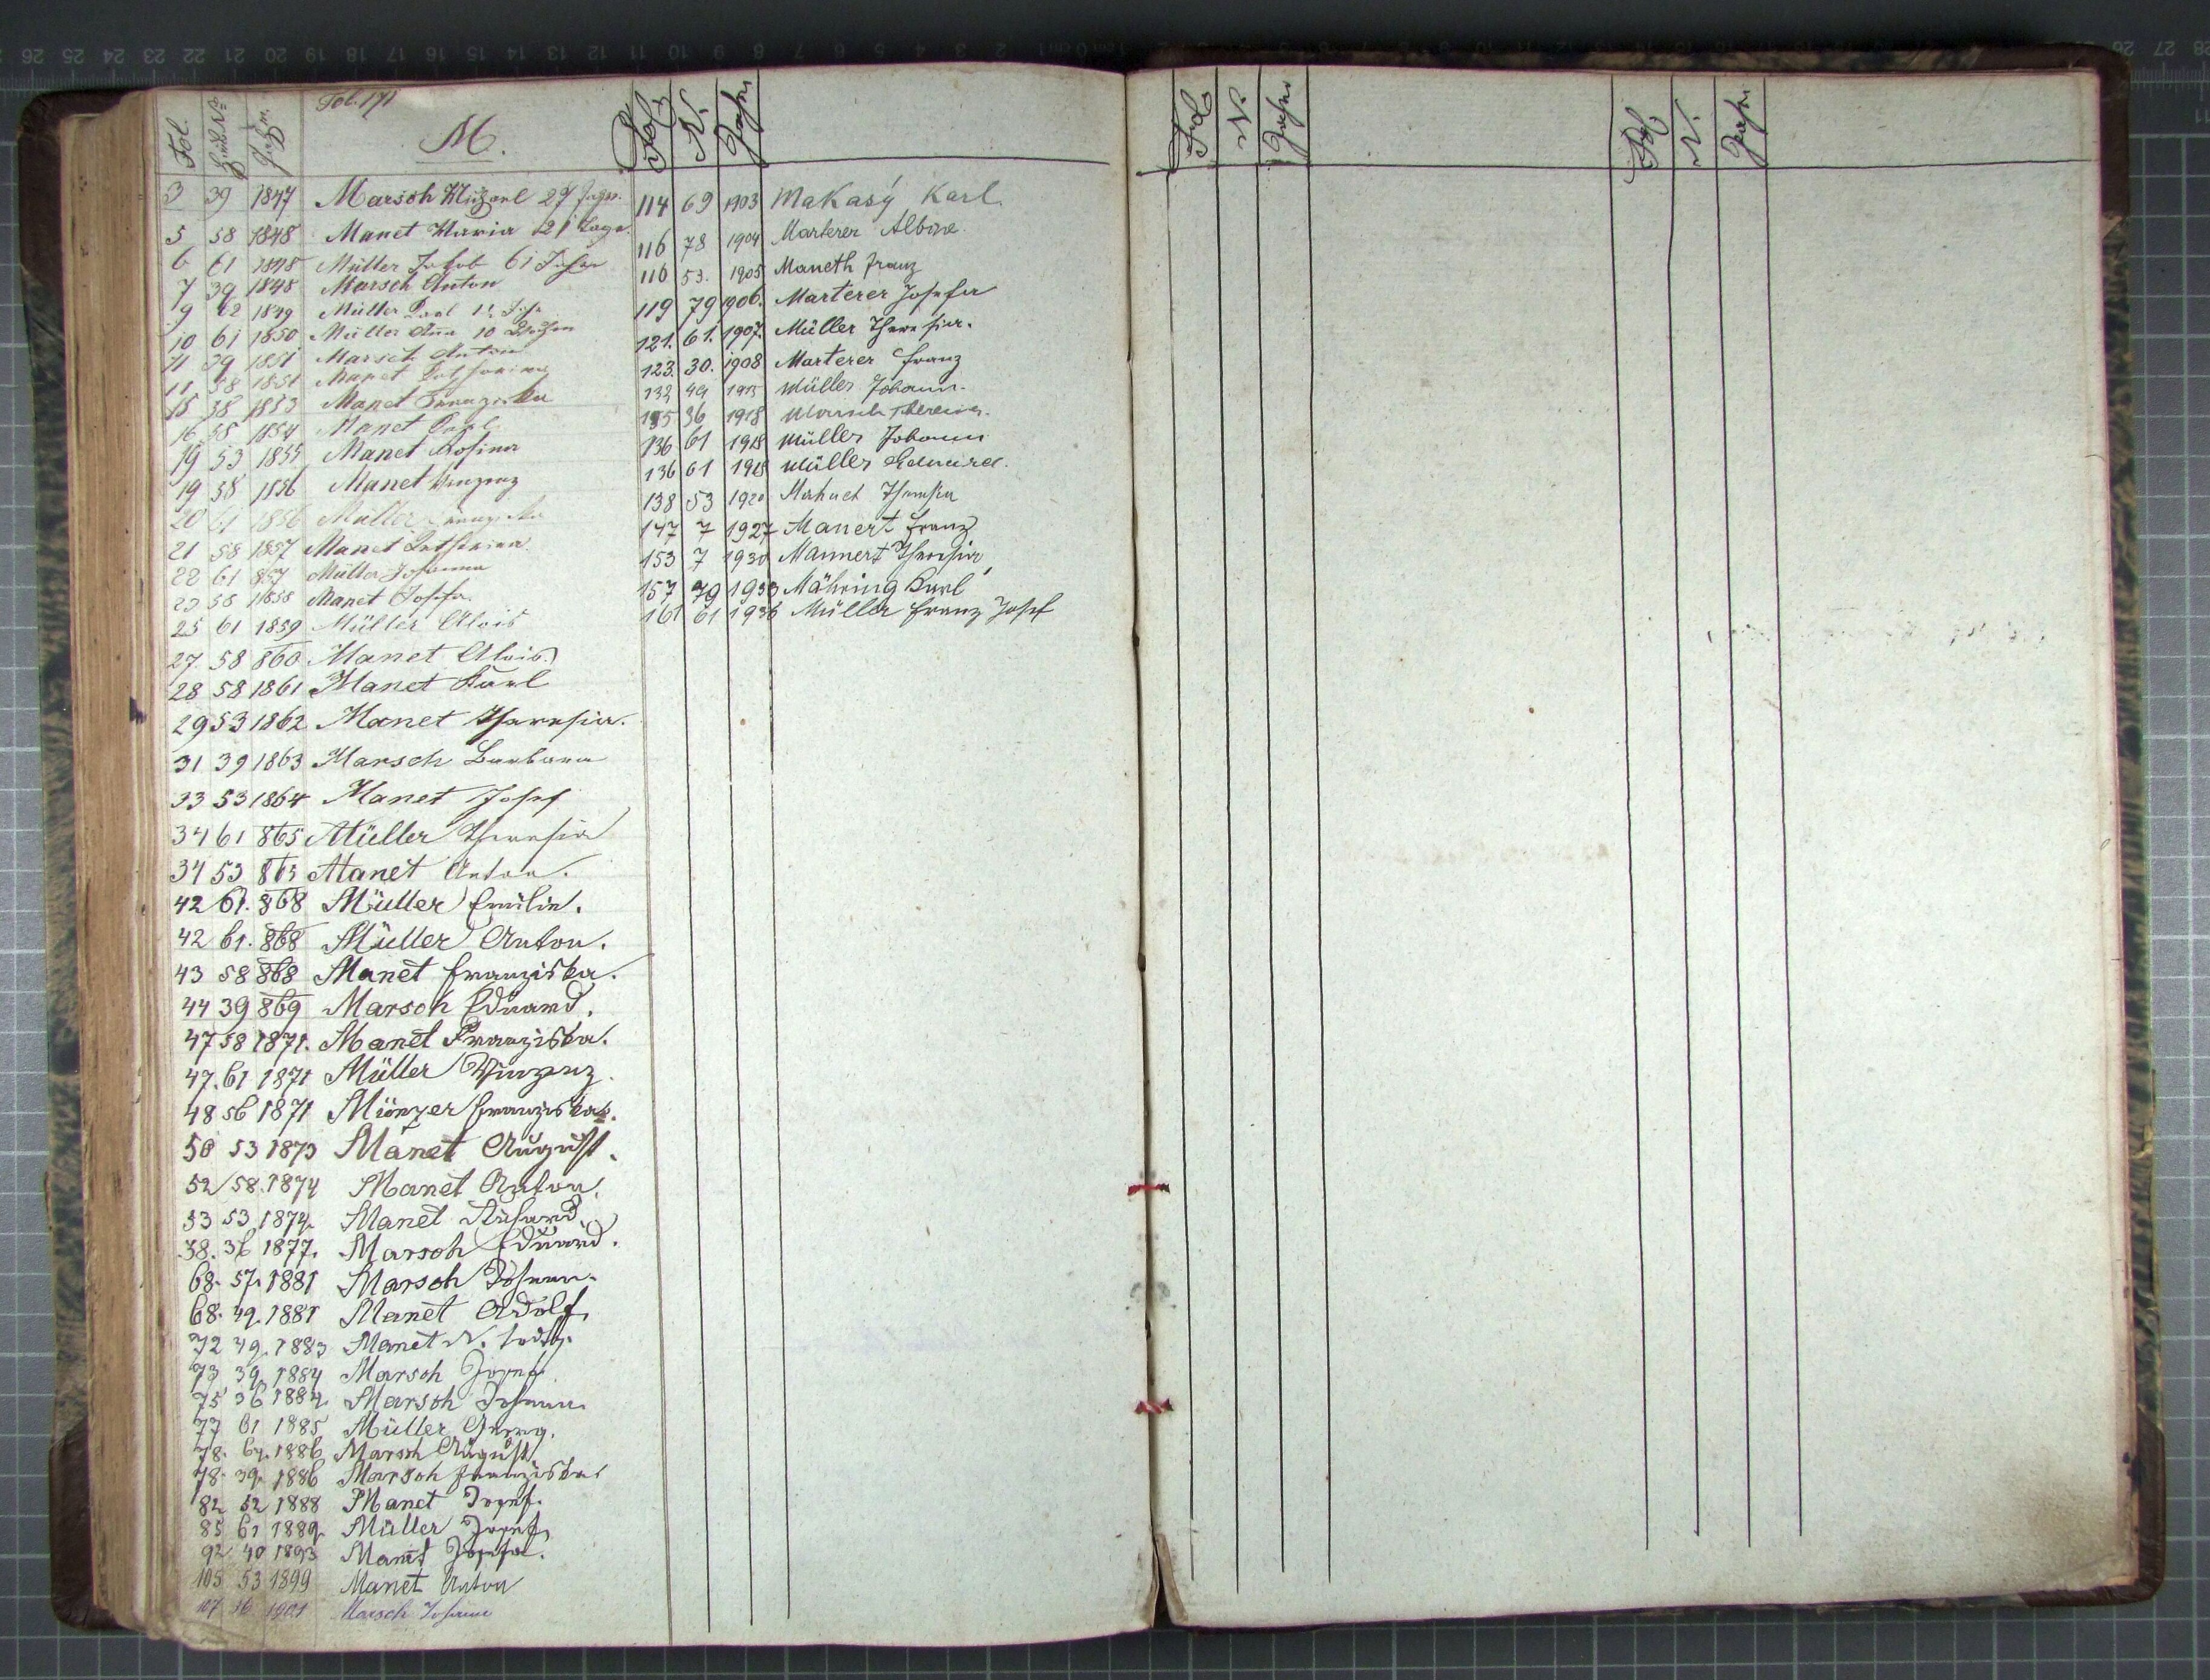 Fol. 171
M.
Fol. Haus No Jahr
3 39 1847 Marsch Michael 27 Jahr.
5 58 1848 Manet Maria 21 Tage
6 61 1848 Müller Jakob 61 Jahr
7 39 1848 Marsch Anton
9 62 1849 Müller
10 61 1850 Müller Anna 10 Wochen
11 39 1851 Marsch Anton
11 58 1851 Manet Katharina
15 58 1853 Manet Franziska
16 58 1854 Manet Karl
19 53 1855 Manet Rosina
19 58 1856 Manet Vinzenz
20 61 1856 Müller Franziska
21 58 1857 Manet Katharina
22 61 857 Müller Johanna
23 58 1858 Manet Josefa
25 61 1859 Müller Alois
27 58 860 Manet Alois
28 58 1861 Manet Karl
29 53 1862 Manet Theresia.
31 39 1863 Marsch Barbara
33 53 1864 Manet Josef
34 61 865 Müller Theresia
34 53 865 Manet Anton.
42 61. 868 Müller Emilie.
42 61. 868 Müller Anton.
43 58 868 Manet Franziska.
44 39 869 Marsch Eduard.
47 58 1871. Manet Franziska.
47. 61 1871 Müller Vinzenz.
48 56 1871 Münzer Franziska.
50 53 1873 Manet August.
52 58. 1874 Manet Anton.
53 53 1874. Manet Richard
58. 36 1877. Marsch Eduard.
68. 57. 1881 Marsch Johann.
68. 49. 1881 Manet Adolf
72 49. 1883 Manet N. todtg.
73 39. 1884 Marsch Josef.
75 36 1884. Marsch Johann.
77 61 1885 Müller Georg.
78. 64. 1886 Marsch August.
78. 39. 1886 Marsch Franziska
82 52 1888 Manet Josef.
85 61 1889. Müller Josef.
92 40 1893 Manet Josefa.
105 53 1899 Manet Anton
107 36 1901 Marsch Johann
Fol. N. Jahr
114 69 1903 Makasý Karl.
116 78 1904 Marterer Albine.
116 53. 1905 Maneth Franz
119 79 1906. Marterer Josefa
121. 61. 1907. Müller Theresia.
123. 30. 1908 Marterer Franz
132 49 1915 Müller Johann.
135 36 1918 Marsch Theresia.
136 61 1918 Müller Johann
136 61 1918 Müller Eduard.
138 53 1920 Theresia
147 7 1927 Manert Franz
153 7 1930 Mannert Theresia
157 79 1933 Mähring Karl
161 61 1936 Müller Franz Josef
Fol. N. Jahr
Fol. N. Jahr